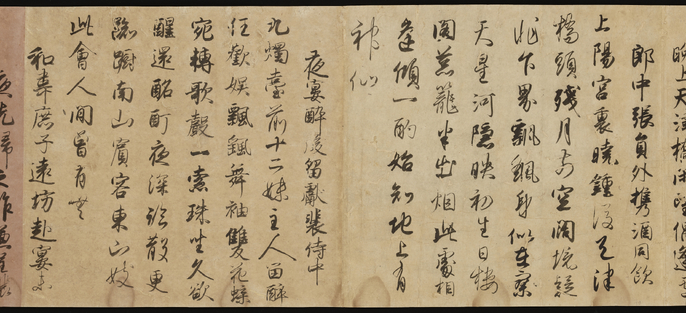 曉上天津橋閑望偶逢盧
郎中張員外携酒同飲
上陽宮裏曉鍾後天津
橋頭殘月前空闊境疑
非下界飄飖身似在寥
天星河隱映初生日樓
閣葱蘢半出烟此處相
逢傾一酌始知地上有
神仙
夜宴醉後留獻裴侍中
九燭臺前十二姝主人留醉
任歡娛飄飖舞袖雙飛蝶
宛轉歌聲一索珠坐久欲
醒還酩酊夜深初散更
踟躕南山賓客東山妓
此會人間曾有無
和韋庶子遠坊赴宴未
夜先歸之作兼呈裴